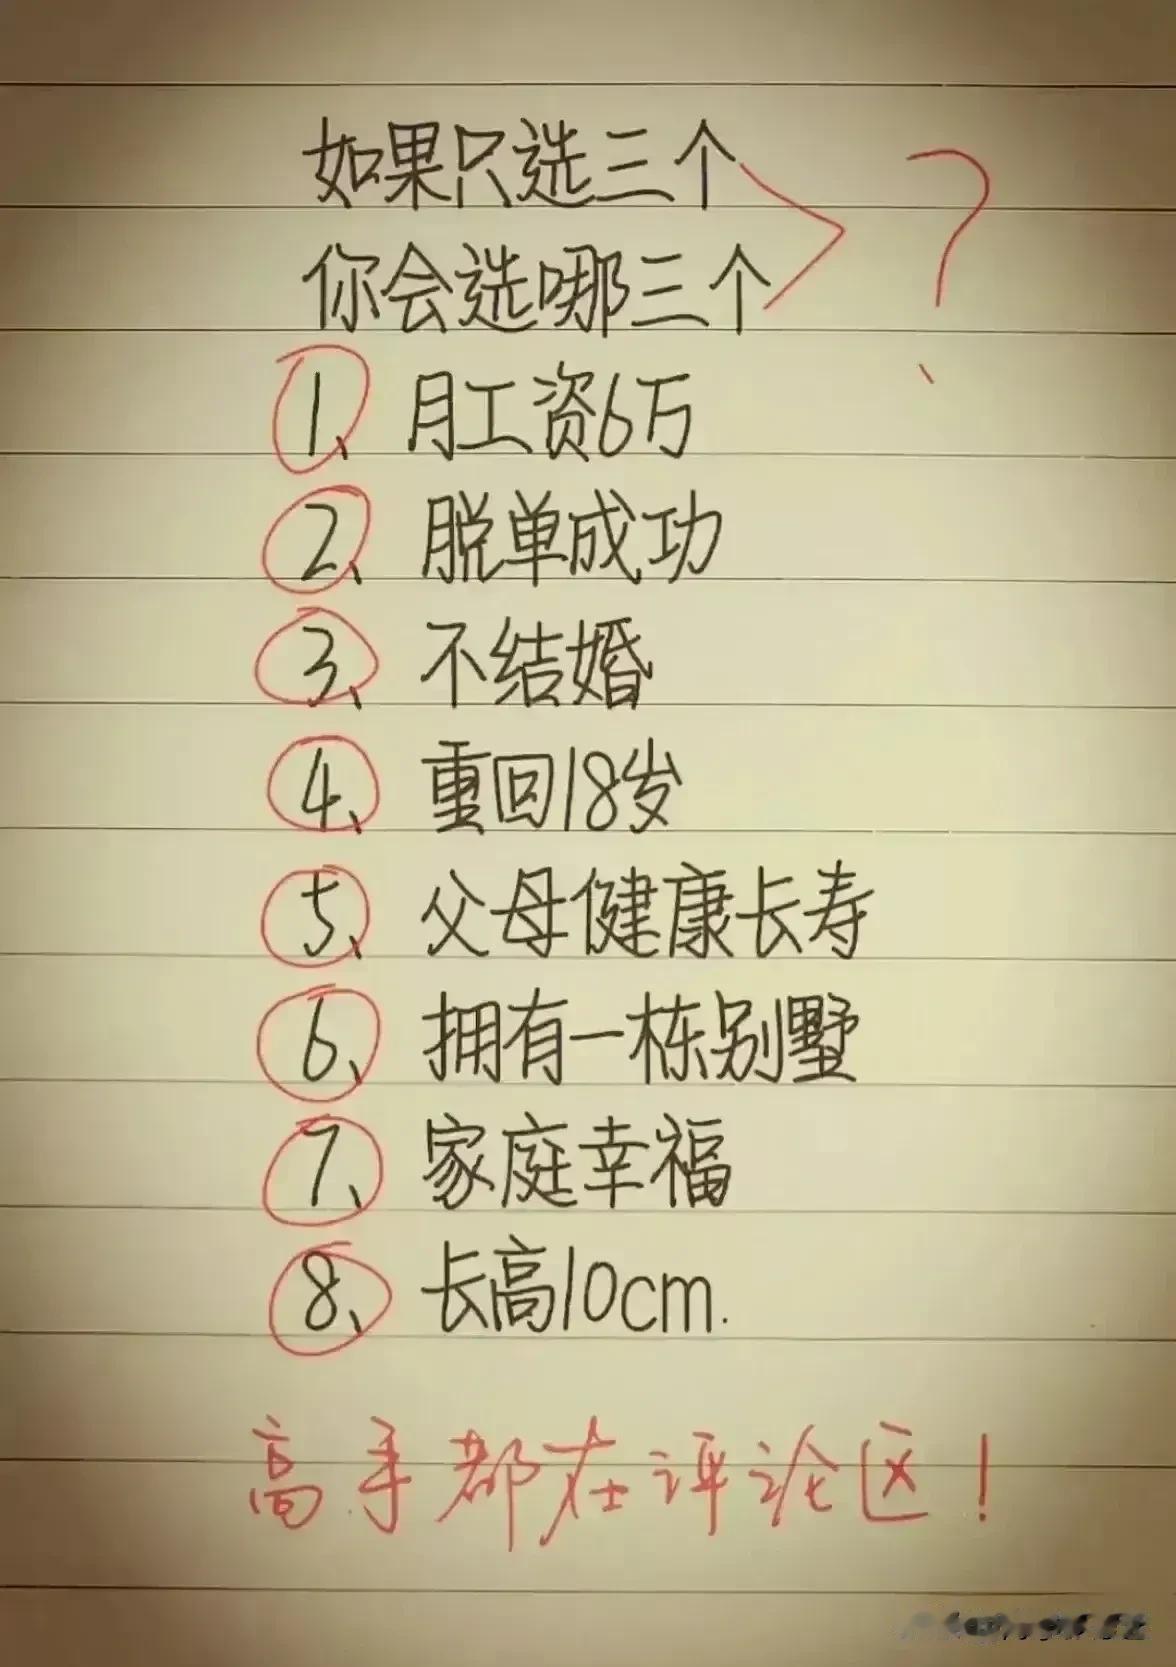 如果只选三个
你会选哪三个?
1、月工资6万
2、脱单成功
3、不结婚
4、重回18岁
5、父母健康长寿
6、拥有一栋别墅
7、家庭幸福
8、长高10cm.
高手都在评论区!